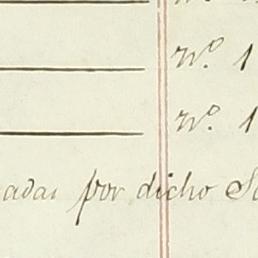 Nº. 1
Nº. 1
adas por dicho